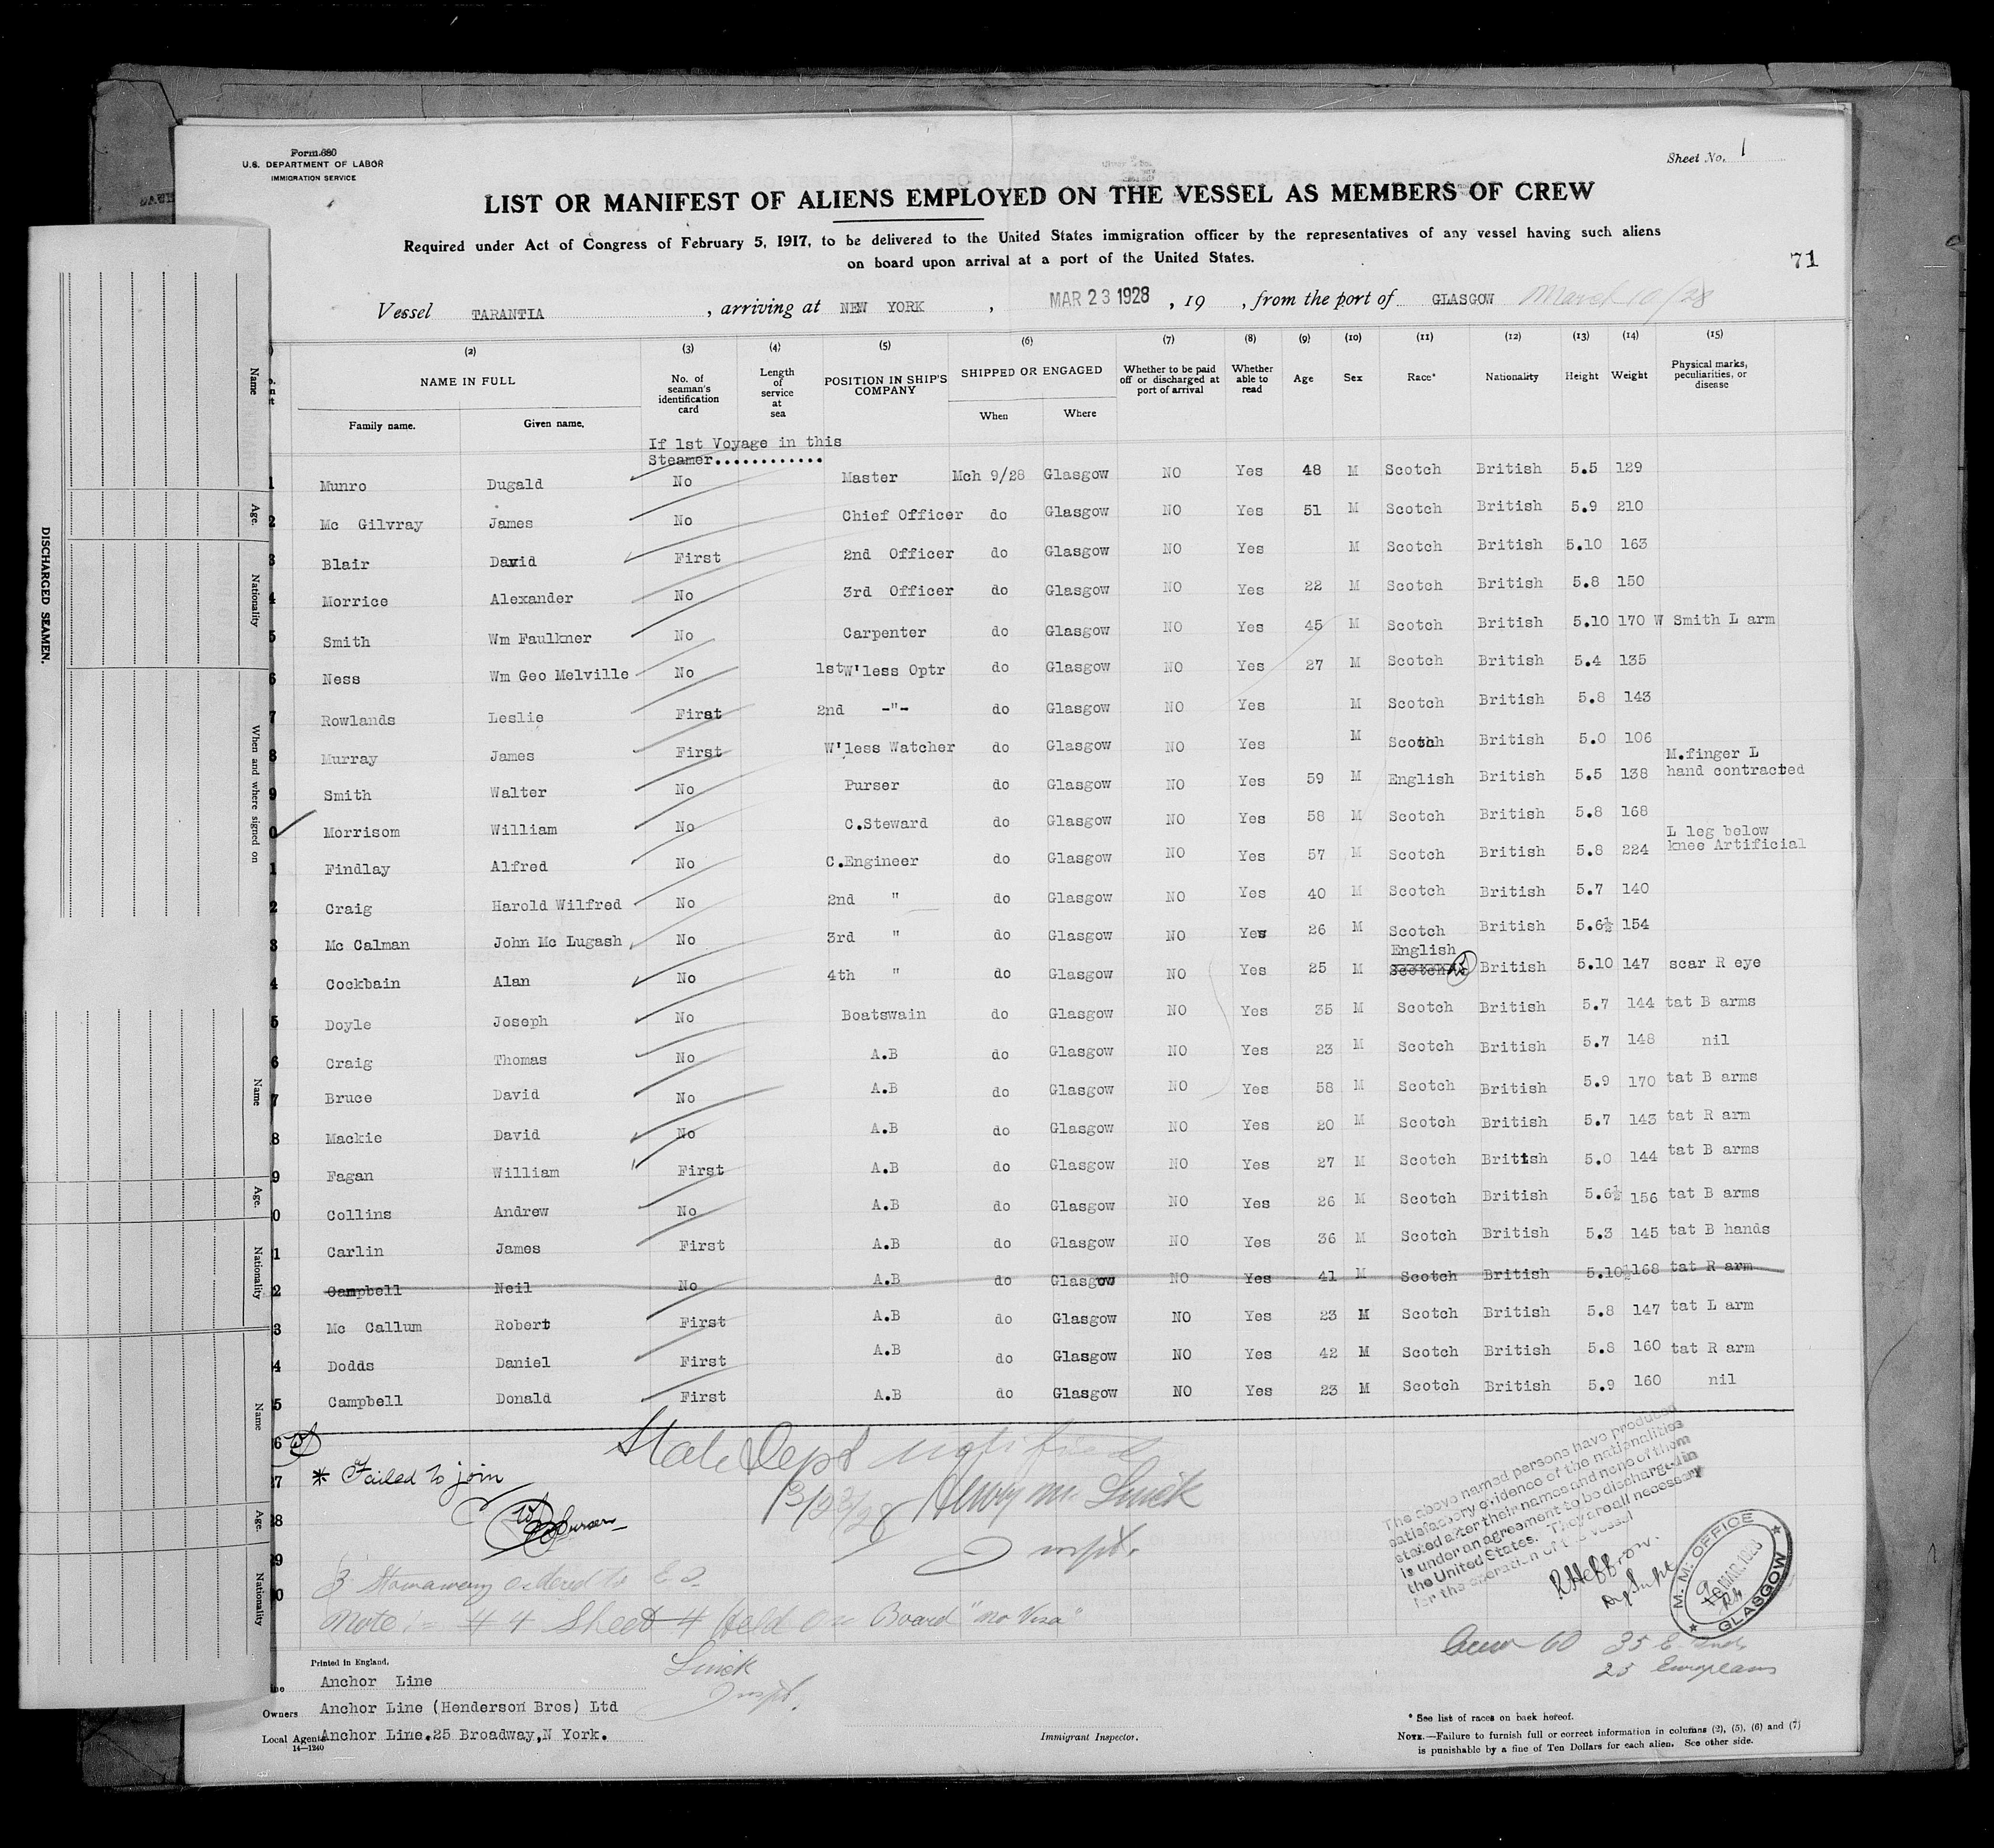 Form 680
U.S. DEPARTMENT OF LABOR
IMMIGRATION SERVICE
Sheet No. 1
LIST OR MANIFEST OF ALIENS EMPLOYED ON THE VESSEL AS MEMBERS OF CREW
Required under Act of Congress of February 5, 1917, to be delivered to the United States immigration officer by the representatives of any vessel having such aliens
on board upon arrival at a port of the United States.
71
Vessel TARANTIA, arriving at NEW YORK, MAR 23 1928, 19 , from the port of GLASGOW March 10/28
(2) (3) (4) (5) (6) (7) (8) (9) (10) (11) (12) (13) (14) (15)
NAME IN FULL
Family name. Given name.
No. of seaman's identification card
Length of service at sea
POSITION IN SHIP'S COMPANY
SHIPPED OR ENGAGED
When Where
Whether to be paid off or discharged at port of arrival
Whether able to read
Age
Sex
Race*
Nationality
Height
Weight
Physical marks, peculiarities, or disease
If 1st Voyage in this
Steamer............
1 Munro Dugald No Master Mch 9/28 Glasgow NO Yes 48 M Scotch British 5.5 129
2 Mc Gilvray James No Chief Officer do Glasgow NO Yes 51 M Scotch British 5.9 210
3 Blair David First 2nd Officer do Glasgow NO Yes M Scotch British 5.10 163
4 Morrice Alexander No 3rd Officer do Glasgow NO Yes 22 M Scotch British 5.8 150
5 Smith Wm Faulkner No Carpenter do Glasgow NO Yes 45 M Scotch British 5.10 170 W Smith L arm
6 Ness Wm Geo Melville No 1stW'less Optr do Glasgow NO Yes 27 M Scotch British 5.4 135
7 Rowlands Leslie First 2nd -"- do Glasgow NO Yes M Scotch British 5.8 143
8 Murray James First W'less Watcher do Glasgow NO Yes M Scotch British 5.0 106
9 Smith Walter No Purser do Glasgow NO Yes 59 M English British 5.5 138 M.finger L hand contracted
0 Morrisom William No C.Steward do Glasgow NO Yes 58 M Scotch British 5.8 168
1 Findlay Alfred No C.Engineer do Glasgow NO Yes 57 M Scotch British 5.8 224 L leg below knee Artificial
2 Craig Harold Wilfred No 2nd " do Glasgow NO Yes 40 M Scotch British 5.7 140
3 Mc Calman John Mc Lugash No 3rd " do Glasgow NO Yes 26 M Scotch British 5.6½ 154
4 Cockbain Alan No 4th " do Glasgow NO Yes 25 M English Scotch British 5.10 147 scar R eye
5 Doyle Joseph No Boatswain do Glasgow NO Yes 35 M Scotch British 5.7 144 tat B arms
6 Craig Thomas No A.B do Glasgow NO Yes 23 M Scotch British 5.7 148 nil
7 Bruce David No A.B do Glasgow NO Yes 58 M Scotch British 5.9 170 tat B arms
8 Mackie David No A.B do Glasgow NO Yes 20 M Scotch British 5.7 143 tat R arm
9 Fagan William First A.B do Glasgow NO Yes 27 M Scotch British 5.0 144 tat B arms
0 Collins Andrew No A.B do Glasgow NO Yes 26 M Scotch British 5.6½ 156 tat B arms
1 Carlin James First A.B do Glasgow NO Yes 36 M Scotch British 5.3 145 tat B hands
2 Campbell Neil No A.B do Glasgow NO Yes 41 M Scotch British 5.10½ 168 tat R arm
3 Mc Callum Robert First A.B do Glasgow NO Yes 23 M Scotch British 5.8 147 tat L arm
4 Dodds Daniel First A.B do Glasgow NO Yes 42 M Scotch British 5.8 160 tat R arm
5 Campbell Donald First A.B do Glasgow NO Yes 23 M Scotch British 5.9 160 nil
6
7
8
9
0
State Dept notified
* Failed to join
3/23/28 Henry M.
Inspt.
Purser
3 Stowaways ordered to
Note:- #4 Sheet 4 Held On Board "no Visa"
Inspt.
The above named persons have produced
satisfactory evidence of the nationalities
stated after their names and none of them
is under an agreement to be discharged in
the United States. They are all necessary
for the operation of the vessel
M.M. OFFICE
MAR 1928
GLASGOW
60 35 E. Ind.
25 Europeans
Printed in England.
Anchor Line
Owners Anchor Line (Henderson Bros) Ltd
Local Agents Anchor Line.25 Broadway,N York.
14—1240
Immigrant Inspector.
* See list of races on back hereof.
NOTE.—Failure to furnish full or correct information in columns (2), (5), (6) and (7)
is punishable by a fine of Ten Dollars for each alien. See other side.
DISCHARGED SEAMEN.
Name
Age.
Nationality
When and where signed on
Name
Age.
Nationality
Name
Age.
Nationality